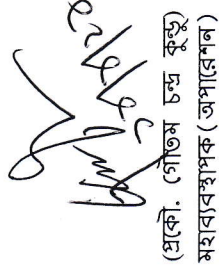 (প্রকৌ. গৌতম চন্দ্র কুন্ডু)
মহাব্যবস্থাপক ( অপারেশন )